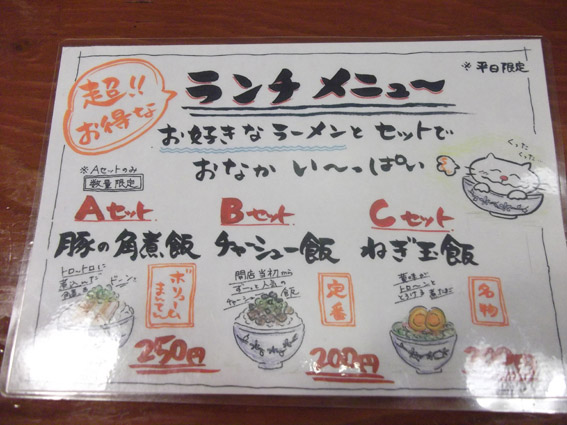 超!!
お得な
ランチメニュ〜
※平日限定
お好きなラーメンとセットで
おなかい〜っぱい
ぐった
ぐった
※Aセットのみ
数量限定
Aセット
豚の角煮飯
トロートロに
煮込んだ
角煮を
ドーンと
ボリューム
まんてん
250円
Bセット
チャーシュー飯
開店当初から
ずーっと人気の
チャーシュー飯
定番
200円
Cセット
ねぎ玉飯
黄味が
トローンと
とろける煮たまご
名物